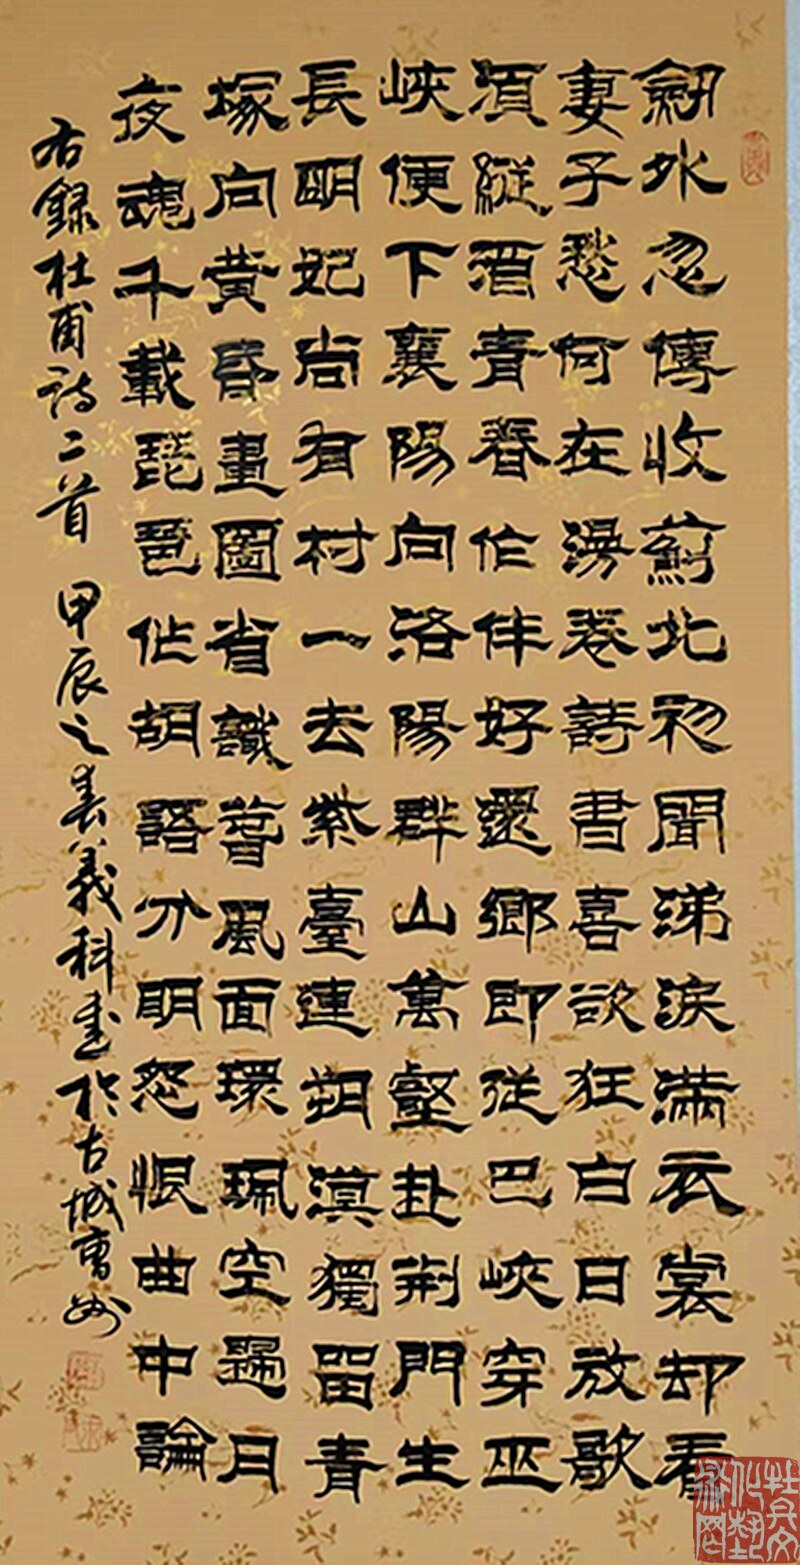 劒外忽傳收薊北初聞涕淚滿衣裳却看
妻子愁何在漫卷詩書喜欲狂白日放歌
須縱酒青春作伴好還鄉即從巴峽穿巫
峽便下襄陽向洛陽群山萬壑赴荆門生
長明妃尚有村一去紫臺連朔漠獨留青
塚向黄昏畫圖省識春風面環珮空歸月
夜魂千載琵琶作胡語分明怨恨曲中論
右録杜甫詩二首 甲辰之春義科書於古城曹州